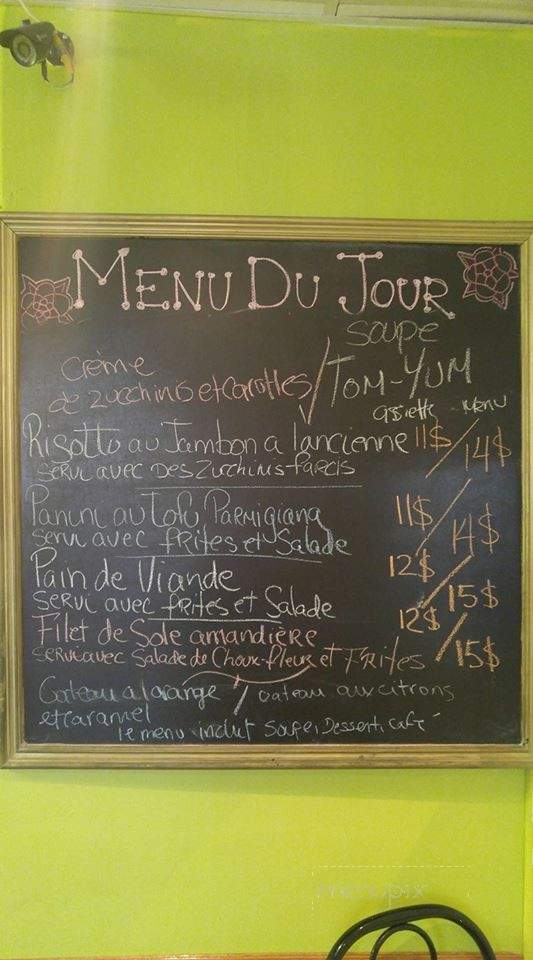 MENU DU JOUR
soupe
crème
de zucchinis et carottes / TOM-YUM
assiette - Menu
Risotto au Jambon a l'ancienne 11$ / 14$
servi avec DES Zucchinis farcis
Panini au Tofu PARMIGIANA 11$ / 14$
servi avec frites et Salade
Pain de Viande 12$ / 15$
servi avec frites et Salade
Filet de Sole amandière 12$ / 15$
servi avec Salade de Choux-fleur et Frites
Gateau a l'orange / Gateau aux citrons
et caramel
le menu inclut Soupe, Dessert, Café